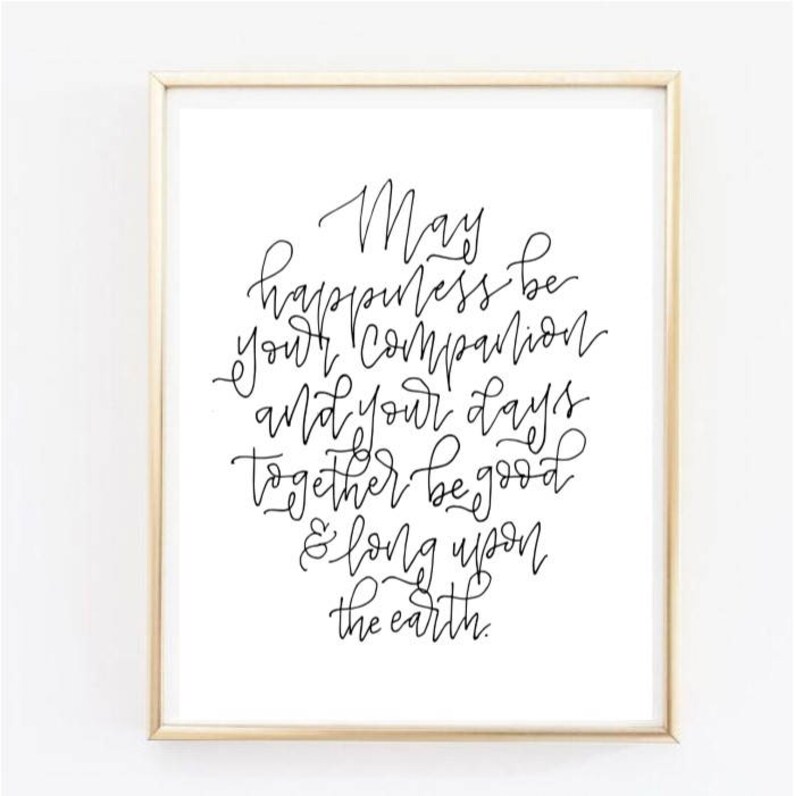 May
happiness be
your companion
and your days
together be good
& long upon
the earth.